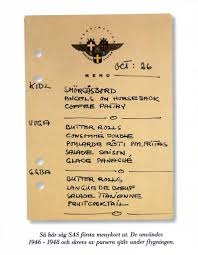 OCT: 26
MENU
KIDL
SMÖRGÅSBORD
ANGELS ON HORSEBACK
COFFEE PASTRY
BUTTER ROLLS
CONSOMMÉ DOUBLE
POULARDE RÔTI POM. FRITES
SALADE SAISON
GLACE PANACHÉ
BUTTER ROLLS
LANGUE DE BOEUF
SALADE ITALIENNE
FRUITCOCKTAIL
Så här såg SAS första menykort ut. De användes
1946 - 1948 och skrevs av pursern själv under flygningen.